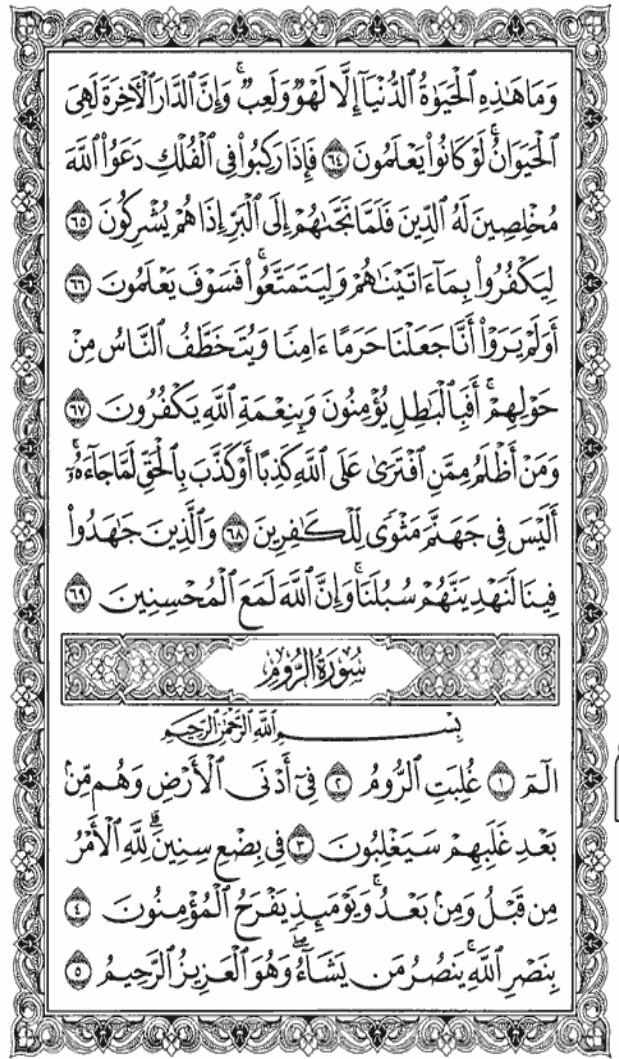 وَمَا هَٰذِهِ ٱلْحَيَوٰةُ ٱلدُّنْيَآ إِلَّا لَهْوٌ وَلَعِبٌ ۚ وَإِنَّ ٱلدَّارَ ٱلْأَخِرَةَ لَهِىَ
ٱلْحَيَوَانُ ۚ لَوْ كَانُوا۟ يَعْلَمُونَ ٦٤ فَإِذَا رَكِبُوا۟ فِى ٱلْفُلْكِ دَعَوُا۟ ٱللَّهَ
مُخْلِصِينَ لَهُ ٱلدِّينَ فَلَمَّا نَجَّىٰهُمْ إِلَى ٱلْبَرِّ إِذَا هُمْ يُشْرِكُونَ ٦٥
لِيَكْفُرُوا۟ بِمَآ ءَاتَيْنَٰهُمْ وَلِيَتَمَتَّعُوا۟ ۖ فَسَوْفَ يَعْلَمُونَ ٦٦
أَوَلَمْ يَرَوْا۟ أَنَّا جَعَلْنَا حَرَمًا ءَامِنًا وَيُتَخَطَّفُ ٱلنَّاسُ مِنْ
حَوْلِهِمْ ۚ أَفَبِٱلْبَٰطِلِ يُؤْمِنُونَ وَبِنِعْمَةِ ٱللَّهِ يَكْفُرُونَ ٦٧
وَمَنْ أَظْلَمُ مِمَّنِ ٱفْتَرَىٰ عَلَى ٱللَّهِ كَذِبًا أَوْ كَذَّبَ بِٱلْحَقِّ لَمَّا جَآءَهُۥٓ ۚ
أَلَيْسَ فِى جَهَنَّمَ مَثْوًى لِّلْكَٰفِرِينَ ٦٨ وَٱلَّذِينَ جَٰهَدُوا۟
فِينَا لَنَهْدِيَنَّهُمْ سُبُلَنَا ۚ وَإِنَّ ٱللَّهَ لَمَعَ ٱلْمُحْسِنِينَ ٦٩
سُورَةُ الرُّومِ
بِسْمِ ٱللَّهِ ٱلرَّحْمَٰنِ ٱلرَّحِيمِ
الٓمٓ ١ غُلِبَتِ ٱلرُّومُ ٢ فِىٓ أَدْنَى ٱلْأَرْضِ وَهُم مِّنۢ
بَعْدِ غَلَبِهِمْ سَيَغْلِبُونَ ٣ فِى بِضْعِ سِنِينَ ۗ لِلَّهِ ٱلْأَمْرُ
مِن قَبْلُ وَمِنۢ بَعْدُ ۚ وَيَوْمَئِذٍ يَفْرَحُ ٱلْمُؤْمِنُونَ ٤
بِنَصْرِ ٱللَّهِ ۚ يَنصُرُ مَن يَشَآءُ ۖ وَهُوَ ٱلْعَزِيزُ ٱلرَّحِيمُ ٥